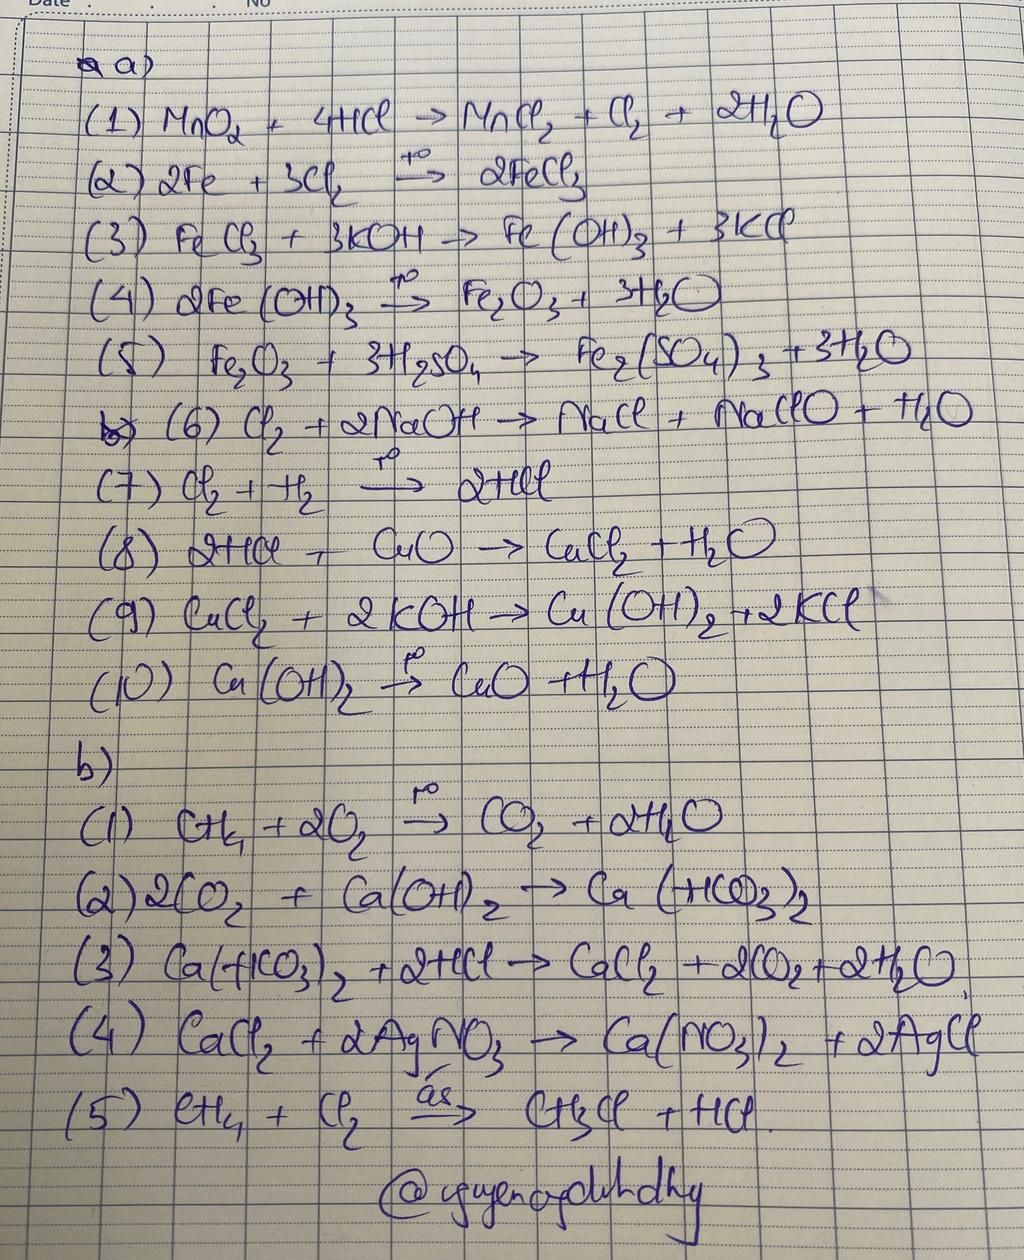 Date . No
a)
(1) MnO₂ + 4HCl → MnCl₂ + Cl₂ + 2H₂O
(2) 2Fe + 3Cl₂ →(t°) 2FeCl₃
(3) FeCl₃ + 3KOH → Fe(OH)₃ + 3KCl
(4) 2Fe(OH)₃ →(t°) Fe₂O₃ + 3H₂O
(5) Fe₂O₃ + 3H₂SO₄ → Fe₂(SO₄)₃ + 3H₂O
(6) Cl₂ + 2NaOH → NaCl + NaClO + H₂O
(7) Cl₂ + H₂ →(t°) 2HCl
(8) 2HCl + CuO → CuCl₂ + H₂O
(9) CuCl₂ + 2KOH → Cu(OH)₂ + 2KCl
(10) Cu(OH)₂ →(t°) CuO + H₂O
b)
(1) CH₄ + 2O₂ →(t°) CO₂ + 2H₂O
(2) 2CO₂ + Ca(OH)₂ → Ca(HCO₃)₂
(3) Ca(HCO₃)₂ + 2HCl → CaCl₂ + 2CO₂ + 2H₂O
(4) CaCl₂ + 2AgNO₃ → Ca(NO₃)₂ + 2AgCl
(5) CH₄ + Cl₂ →(ás) CH₃Cl + HCl.